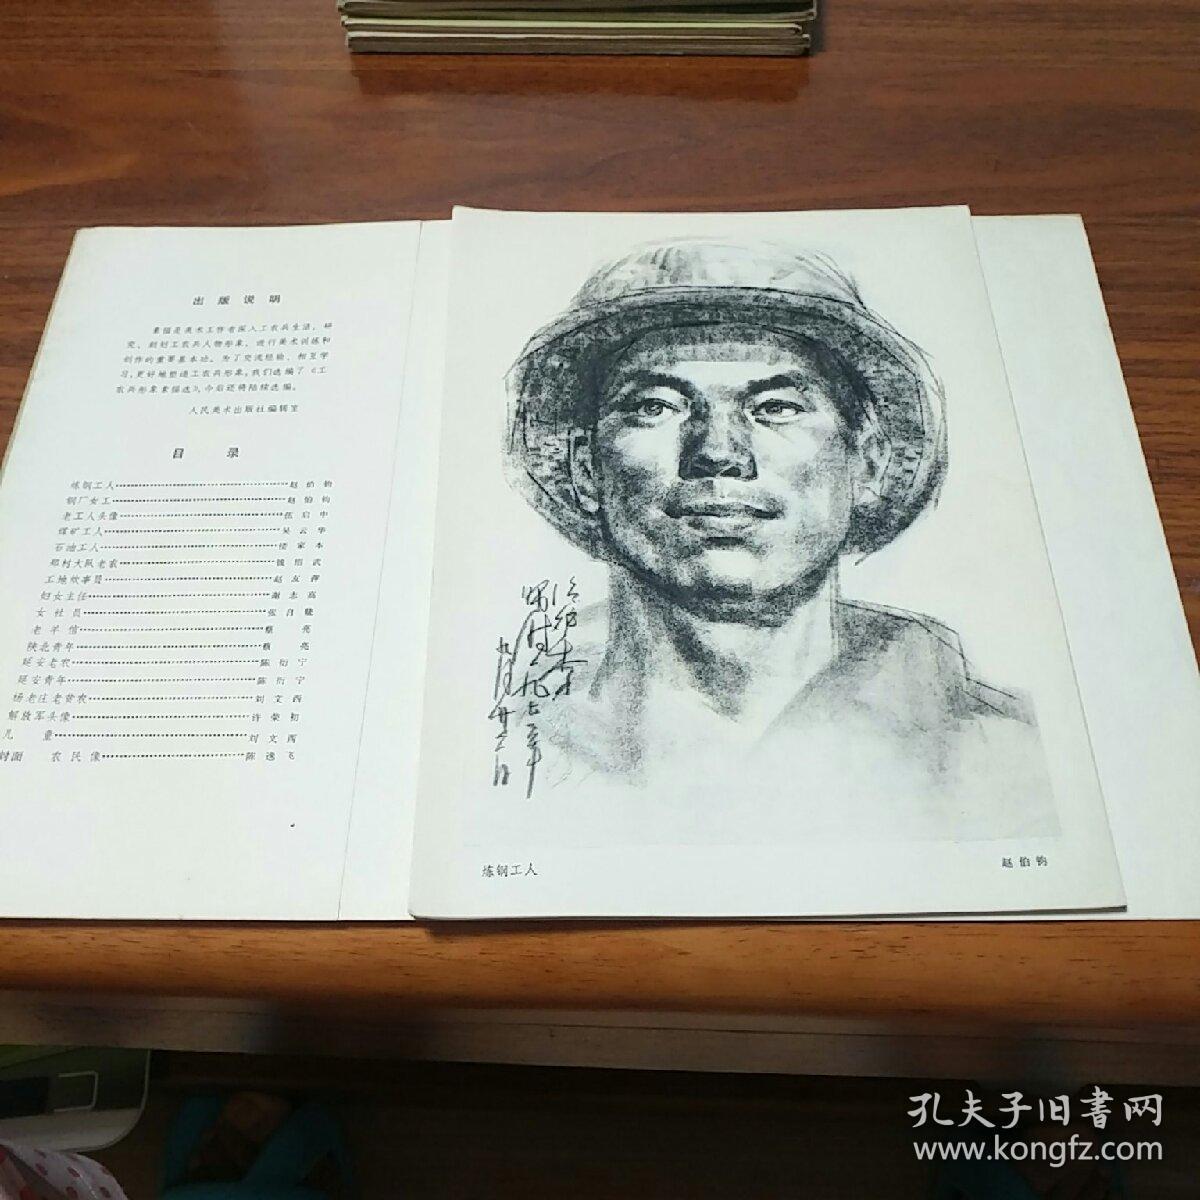 出版说明
素描是美术工作者深入工农兵生活，研
究、刻划工农兵人物形象，进行美术训练和
创作的重要基本功。为了交流经验、相互学
习，更好地塑造工农兵形象，我们选编了《工
农兵形象素描选》，今后还将陆续选编。
人民美术出版社编辑室
目录
炼钢工人 赵伯钧
钢厂女工 赵伯钧
老工人头像 张启中
煤矿工人 吴云华
石油工人 楼家本
郑村大队老农 钱绍武
工地炊事员 赵友萍
妇女主任 谢志高
女社员 张自嶷
老羊倌 蔡亮
陕北青年 蔡亮
延安老农 陈衍宁
延安青年 陈衍宁
杨老庄老贫农 刘文西
解放军头像 许荣初
儿童 刘文西
封面 农民像 陈逸飞
炼钢工人
赵伯钧
孔夫子旧書网
www.kongfz.com